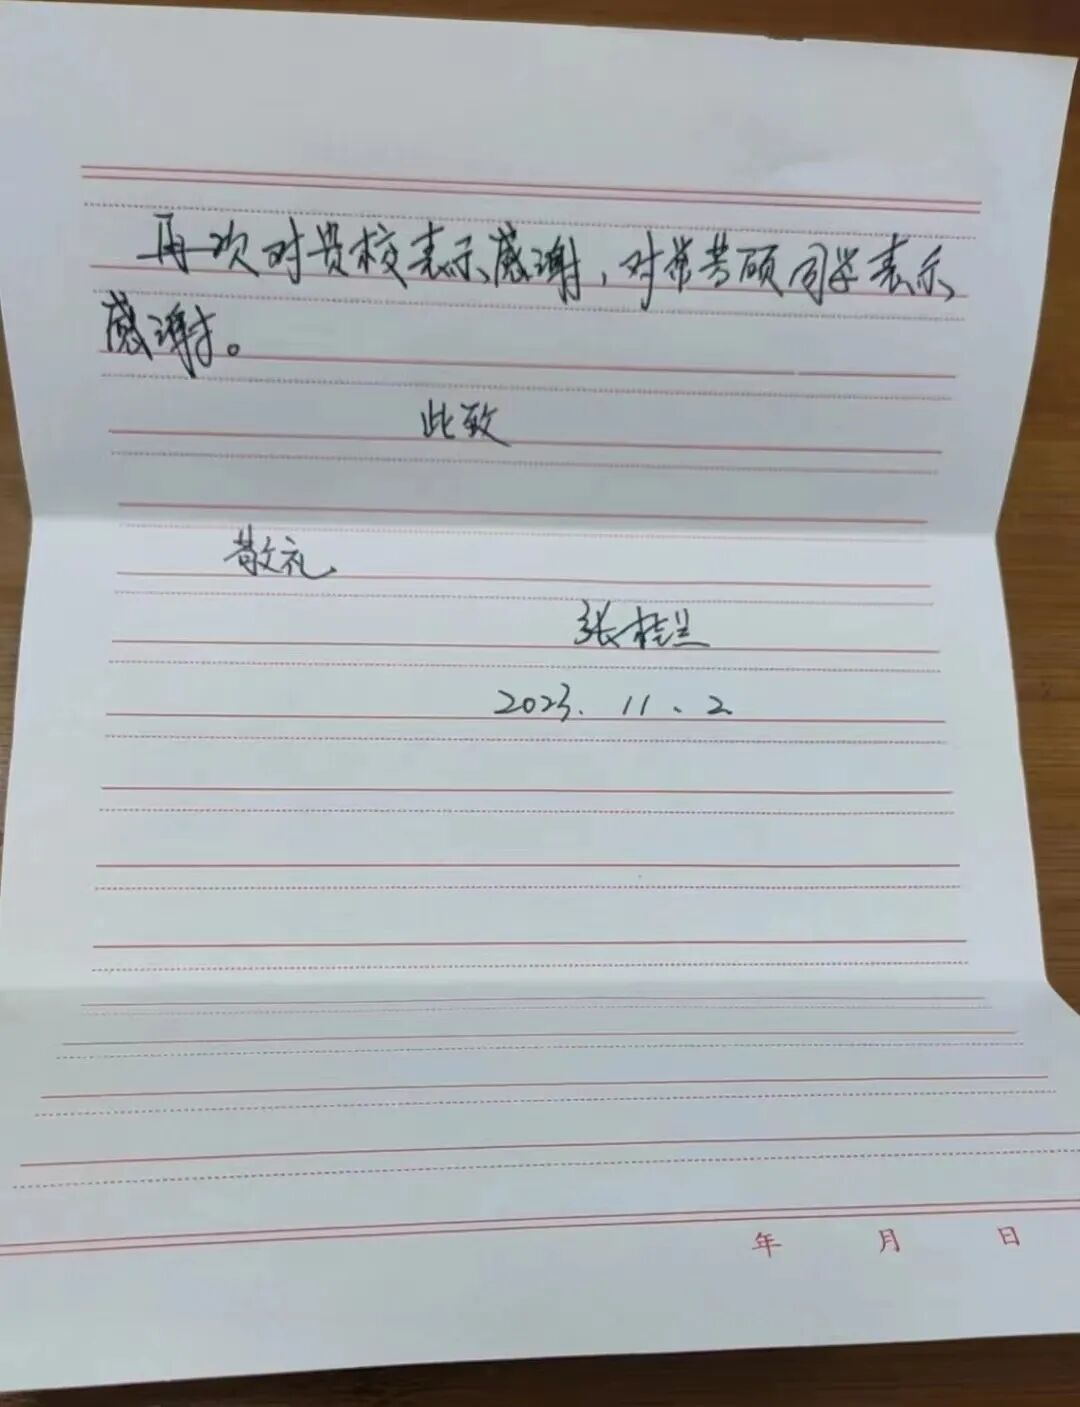 再次对贵校表示感谢，对常芳硕同学表示
感谢。
此致
敬礼
张桂兰
2023.11.2
年 月 日